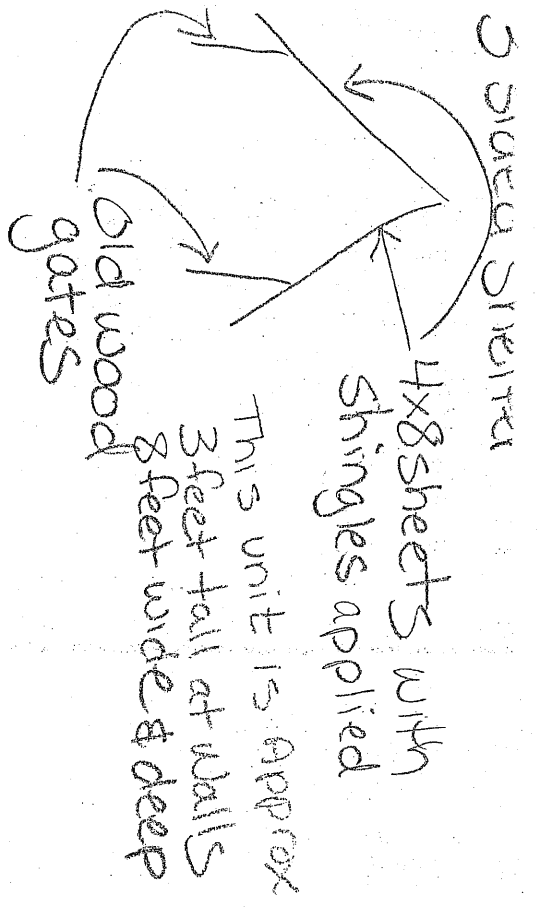 Shelter
4x8 sheets with
shingles applied
This unit is Approx
3 feet tall at walls
8 feet wide & deep
old wood
gates